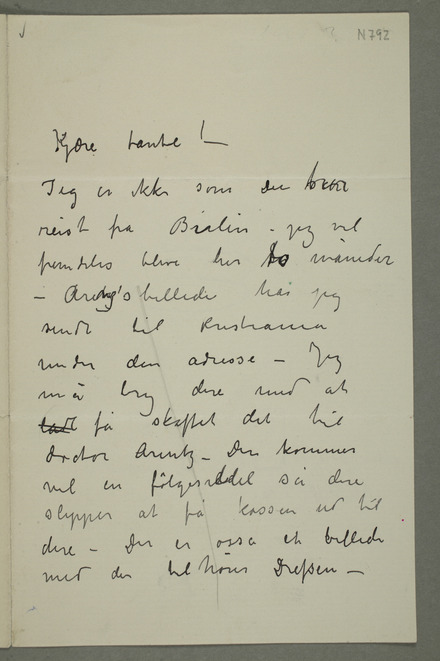 N 792
Kjære tante! —
Jeg er ikke som du troer
reist fra Berlin – jeg vil
fremdeles blive her to måneder
– Arentz's billede har jeg
sendt til Kristiania
under din adresse – Jeg
må bry dere med at
få skaffet det til
doctor Arentz – Der kommer
vel en følgeseddel så dere
slipper at få kassen ud til
dere – Der er også et billede
med der tilhører Dreßen —